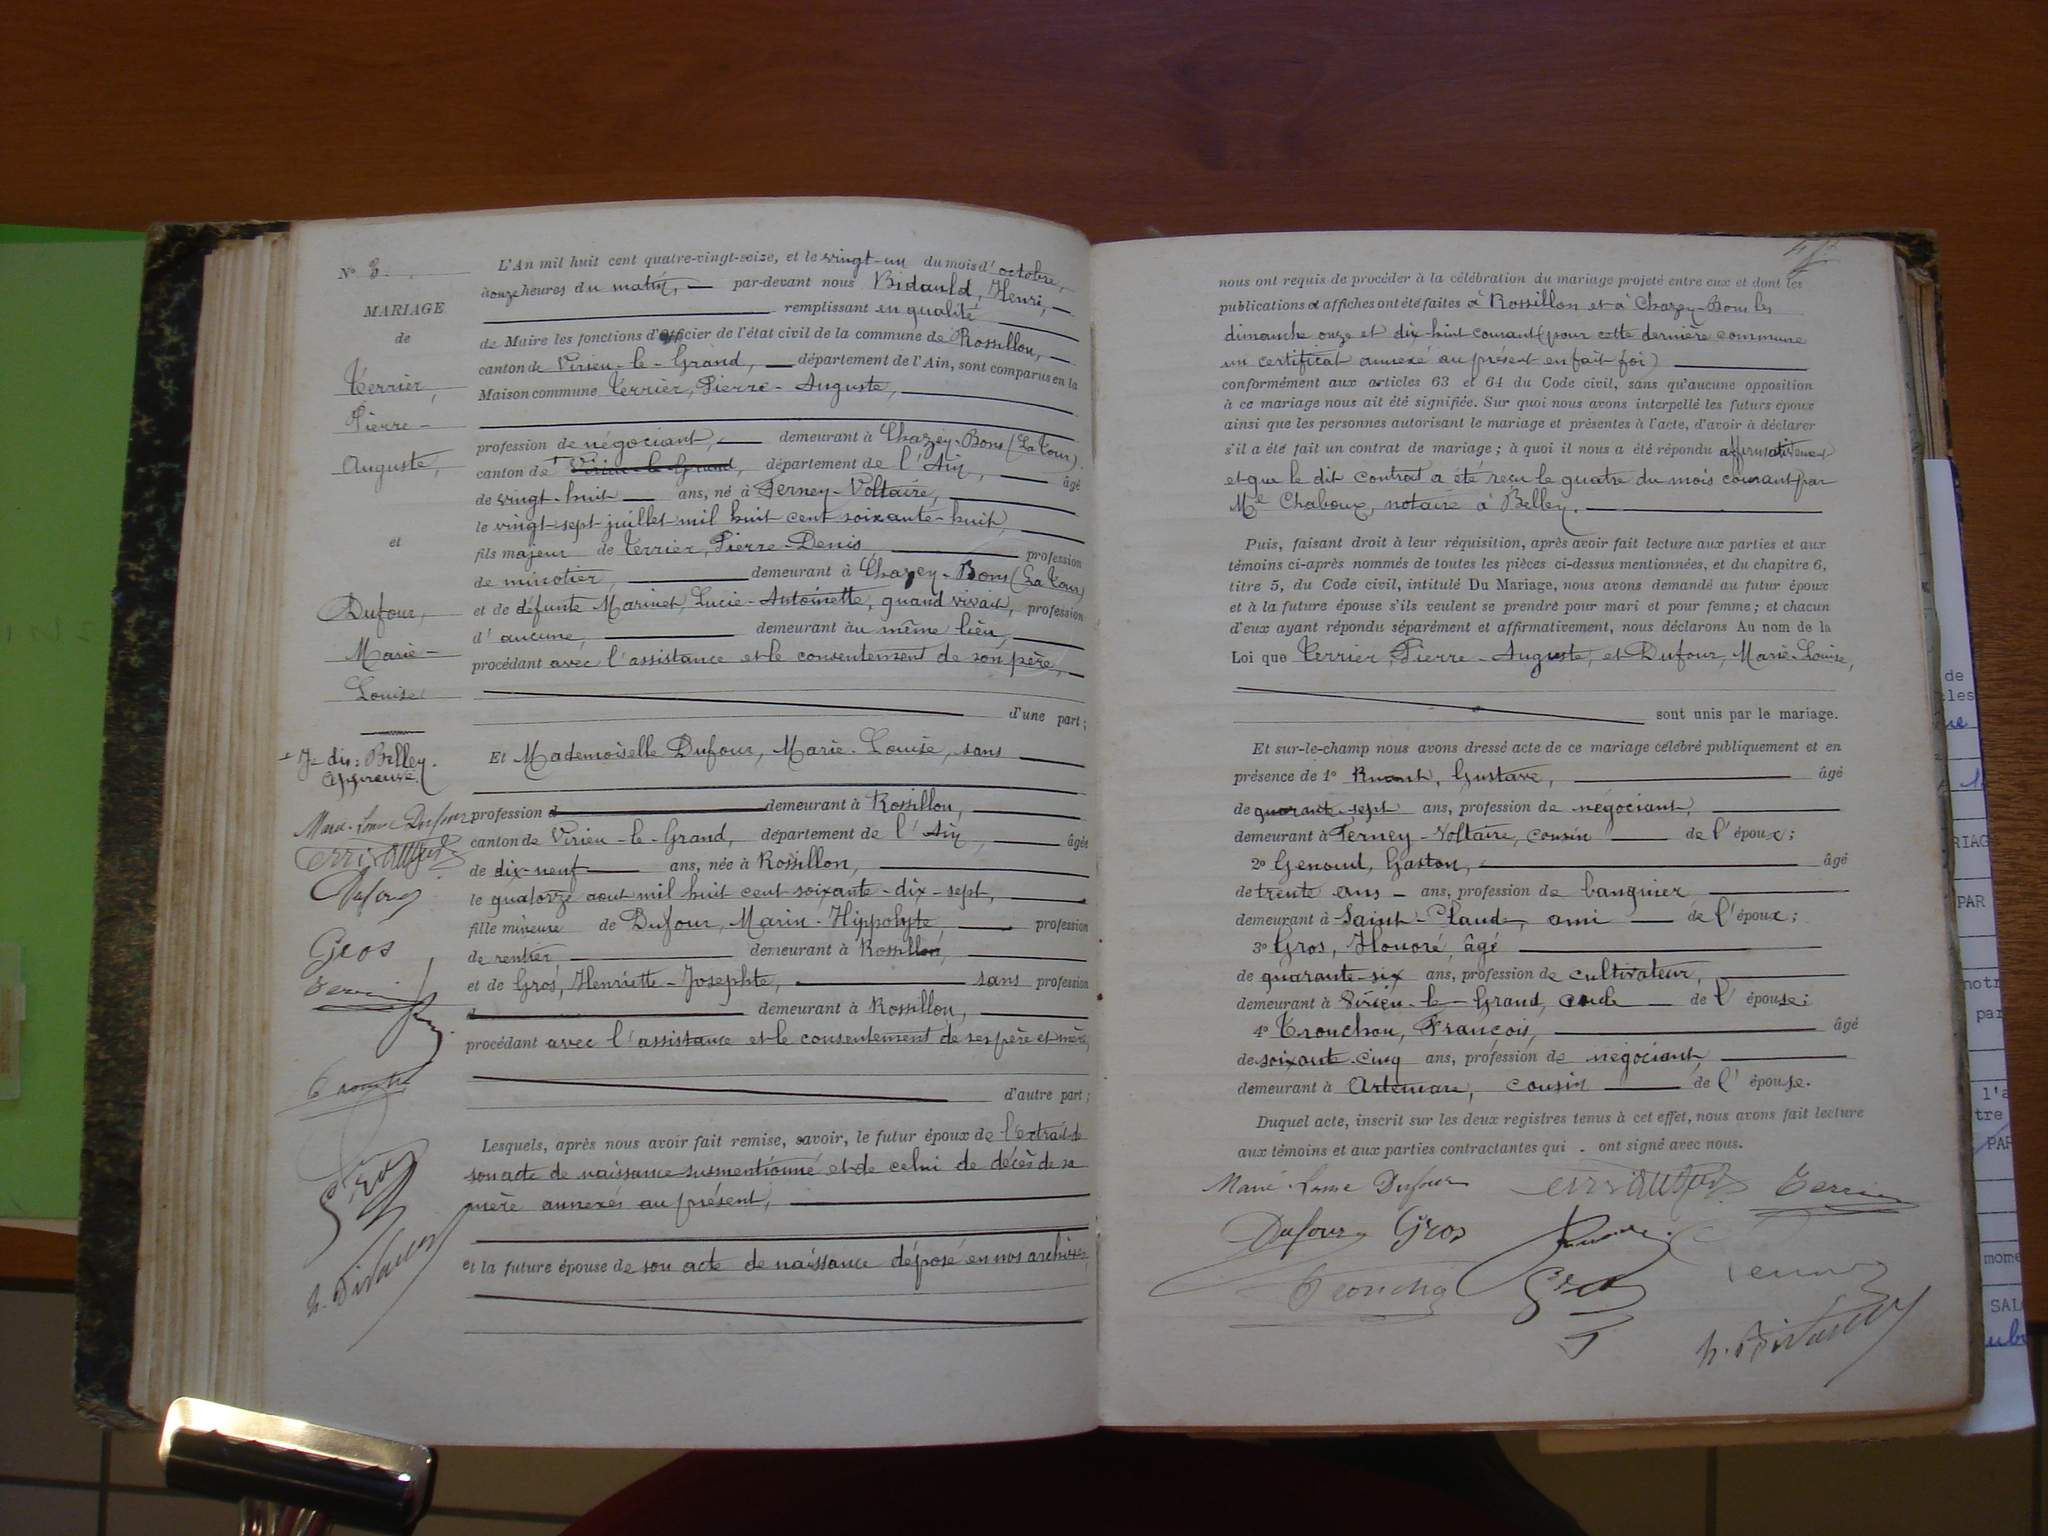 N° 3
MARIAGE
de
Terrier,
Pierre-
Auguste,
et
Dufour,
Marie-
Louise
+ Je dis: Belley.
Approuvé.
Marie-Louise Dufour
Dufour
Gros
L'An mil huit cent quatre-vingt-seize, et le vingt-un du mois d'octobre,
à onze heures du matin, par-devant nous Bidauld, Henri,
remplissant en qualité
de Maire les fonctions d'officier de l'état civil de la commune de Rossillon,
canton de Virieu-le-Grand, département de l'Ain, sont comparus en la
Maison commune Terrier, Pierre-Auguste,
profession de négociant, demeurant à Chazey-Bons (La Tour)
canton de + Virieu-le-Grand, département de l'Ain, âgé
de vingt-huit ans, né à Ferney-Voltaire,
le vingt-sept juillet mil huit cent soixante-huit,
fils majeur de Terrier, Pierre-Denis profession
de minotier, demeurant à Chazey-Bons (La Tour)
et de défunte Marinet, Lucie-Antoinette, quand vivait, profession
d'aucune, demeurant au même lieu,
procédant avec l'assistance et le consentement de son père,
d'une part;
Et Mademoiselle Dufour, Marie-Louise, sans
profession d demeurant à Rossillon,
canton de Virieu-le-Grand, département de l'Ain, âgée
de dix-neuf ans, née à Rossillon,
le quatorze aout mil huit cent soixante-dix-sept,
fille mineure de Dufour, Marin-Hippolyte, profession
de rentier demeurant à Rossillon,
et de Gros, Henriette-Josephte, sans profession
demeurant à Rossillon,
procédant avec l'assistance et le consentement de ses père et mère,
d'autre part;
Lesquels, après nous avoir fait remise, savoir, le futur époux de l'extrait de
son acte de naissance susmentionné et de celui de décès de sa
mère annexés au présent,
et la future épouse de son acte de naissance déposé en nos archives,
nous ont requis de procéder à la célébration du mariage projeté entre eux et dont les
publications & affiches ont été faites à Rossillon et à Chazey-Bons les
dimanche onze et dix-huit courant (pour cette dernière commune
un certificat annexé au présent en fait foi)
conformément aux articles 63 et 64 du Code civil, sans qu'aucune opposition
à ce mariage nous ait été signifiée. Sur quoi nous avons interpellé les futurs époux
ainsi que les personnes autorisant le mariage et présentes à l'acte, d'avoir à déclarer
s'il a été fait un contrat de mariage; à quoi il nous a été répondu affirmativement
et que le dit contrat a été reçu le quatre du mois courant par
Me Chaboux, notaire à Belley.
Puis, faisant droit à leur réquisition, après avoir fait lecture aux parties et aux
témoins ci-après nommés de toutes les pièces ci-dessus mentionnées, et du chapitre 6,
titre 5, du Code civil, intitulé Du Mariage, nous avons demandé au futur époux
et à la future épouse s'ils veulent se prendre pour mari et pour femme; et chacun
d'eux ayant répondu séparément et affirmativement, nous déclarons Au nom de la
Loi que Terrier, Pierre-Auguste, et Dufour, Marie-Louise,
sont unis par le mariage.
Et sur-le-champ nous avons dressé acte de ce mariage célébré publiquement et en
présence de 1° Gustave, âgé
de quarante-sept ans, profession de négociant,
demeurant à Ferney-Voltaire, cousin de l'époux;
2° Genoud, Gaston, âgé
de trente ans - ans, profession de banquier
demeurant à Saint-Claude, ami de l'époux;
3° Gros, Honoré, âgé
de quarante-six ans, profession de cultivateur,
demeurant à Virieu-le-Grand, oncle de l'épouse;
4° Tronchon, François, âgé
de soixante-cinq ans, profession de négociant,
demeurant à Artemare, cousin de l'épouse.
Duquel acte, inscrit sur les deux registres tenus à cet effet, nous avons fait lecture
aux témoins et aux parties contractantes qui ont signé avec nous.
Marie-Louise Dufour
Terrier
Dufour Gros
Gros
h. Bidauld